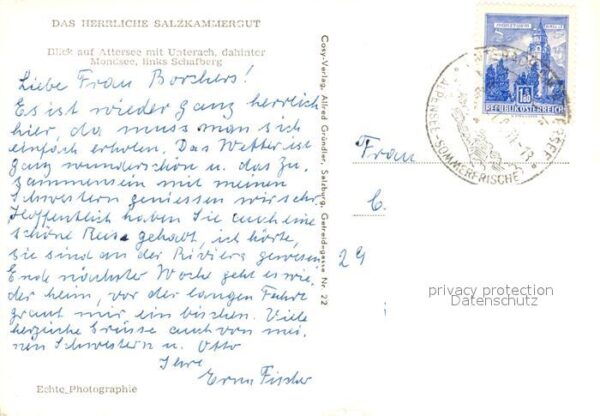 DAS HERRLICHE SALZKAMMERGUT
Blick auf Attersee mit Unterach, dahinter
Mondsee, links Schafberg
Liebe Frau Borchers!
Es ist wieder ganz herrlich
hier, da muss man sich
einfach erholen. Das Wetter ist
ganz wunderschön u. das Zu,
sammensein mit meinen
Schwestern geniessen wir sehr.
Hoffentlich haben Sie auch eine
schöne Reise gehabt, ich hörte,
sie sind an der Riviera gewesen
Ende nächster Woche geht es wie,
der heim, vor der langen Fahrt
graut mir ein bischen. Viele
herzliche Grüsse auch von mei,
nen Schwestern u. Otto
Ihre
Erna Fischer
Echte Photographie
Cosy-Verlag, Alfred Gründler, Salzburg, Getreidegasse Nr. 22
1.50
REPUBLIK ÖSTERREICH
SOMMERFRISCHE
Frau
C.
29
privacy protection
Datenschutz